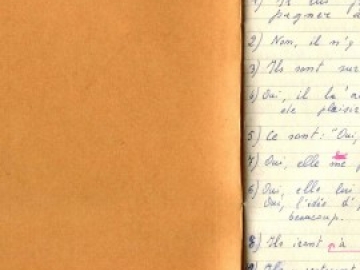 pagner à
2) Non, il n'y
3) Ils sont sur
4) Oui, il l'a
de plaisir
5) Ce sont: "Oui,
7) Oui, elle me
6) Oui, elle lui
Oui, l'idée d'
beaucoup.
8) Ils iront à